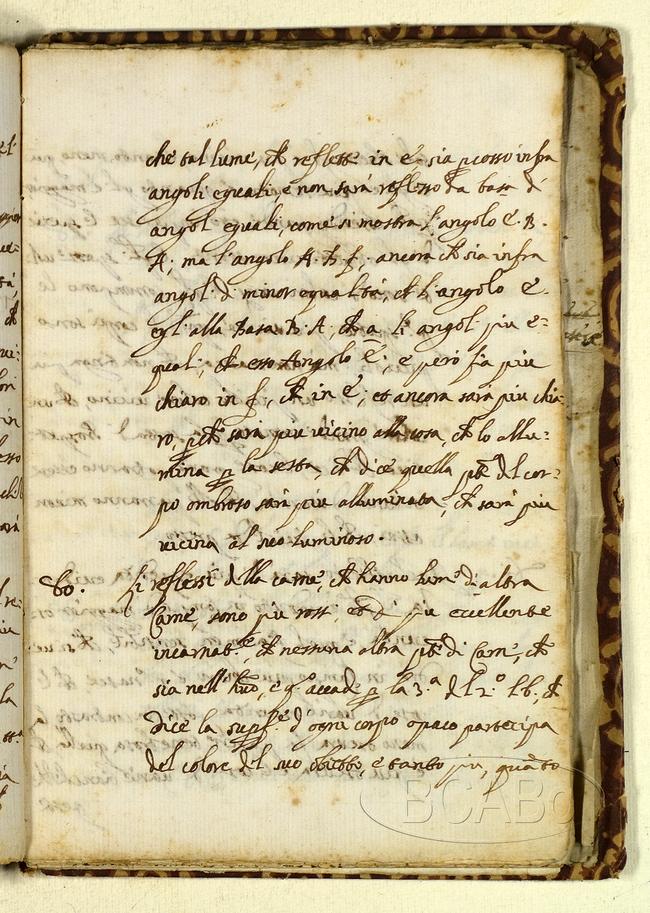 che tal lume, ch reflette in e. sia pcosso infra
angoli eguali, e non sarà reflesso da basa di
angol eguali, come si mostra l'angolo e. B.
A; ma l'angolo A. b f; ancora ch sia infra
angol di minor equalità, ch l'angolo e.
egl'alla basa B. A, ch a li angol piu e=
qual; ch esso Angolo e; e però fia piu
chiaro in f; ch in e; et ancora sarà piu chia=
ro, pch sarà piu vicino alla cosa, ch lo allu=
mina p la sesta, ch dice quella pte del cor=
po ombroso sarà piu alluminata, ch sarà piu
vicina al suo luminoso.
60. Li reflessi della carne, ch hanno lume da altra
Carne, sono più rossi et di piu eccellente
incarnate, ch nessuna altra pte di Carne, ch
sia nell' huo, e qo accade p la 3.a del 2.o lib., ch
dice la supfe d ogni corpo opaco partecipa
del colore del suo obietto, e tanto piu, quãto
BCABo